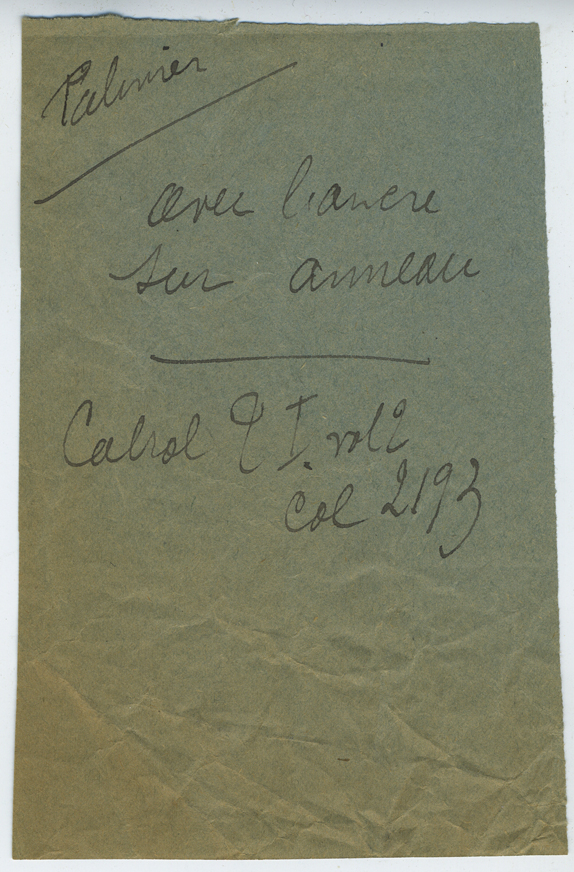 Palmier
avec l'ancre
sur anneau
Cabrol T I. vol 2
col 2193